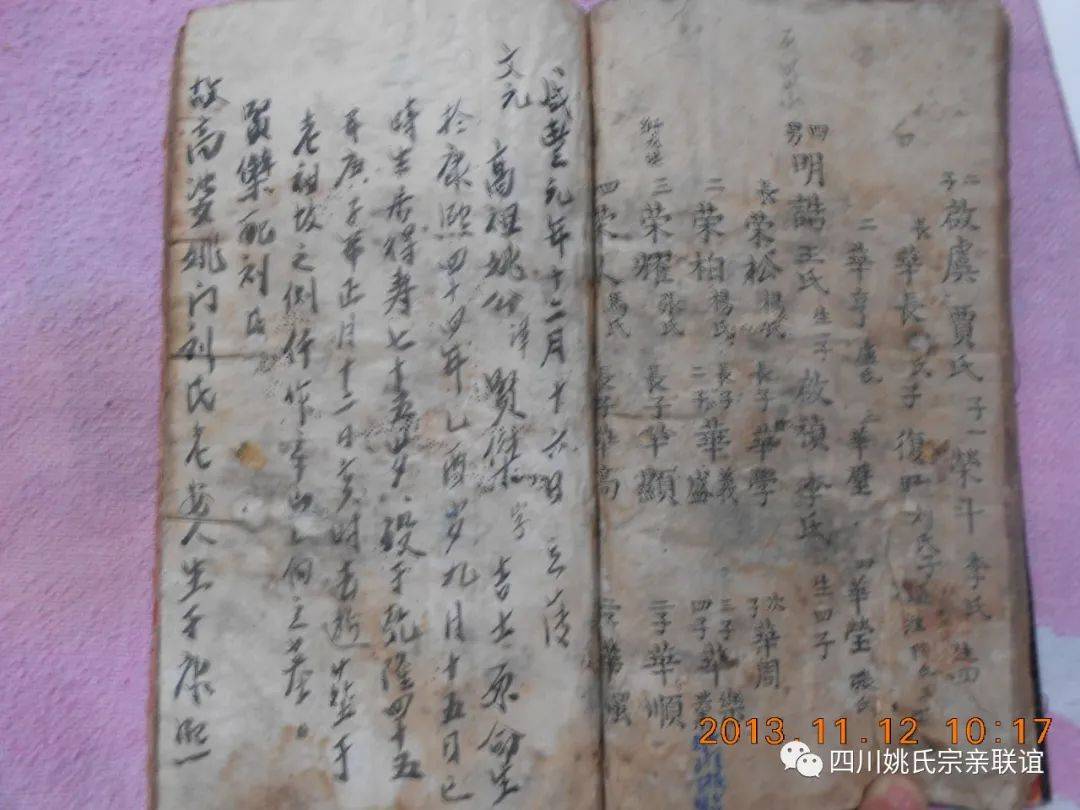 二子 啟虞 賈氏 子一 榮斗 李氏 生四
長 華長 氏子 復 刘氏子
二 華亨 盧氏 三 華璧 四 華瑩 張氏
四男 明誥 王氏 生一子 啟禎 李氏 生四子
長 荣松 楊氏 長子 華學 次子 華周
二 荣柏 楊氏 長子 華義 二子 華盛 三子 華樂 四子 華
三 荣耀 張氏 長子 華顯 二子 華順
四 荣人 馬氏 長子 華高 二子 華
咸豐元年十二月十六日 立清
文元 高祖姚公 諱 賢傑 字 吉士 原命生
於康熙四十四年乙酉岁九月十五日巳
時生 得寿七十五岁 殁于乾隆四十五
年庚子年正月十二日亥时去逝 塟于
老祖坟之侧 作 山 向之墓。
賢傑配刘氏
故高婆姚门刘氏老安人生于康熙
2013.11.12 10:17
四川姚氏宗亲联谊